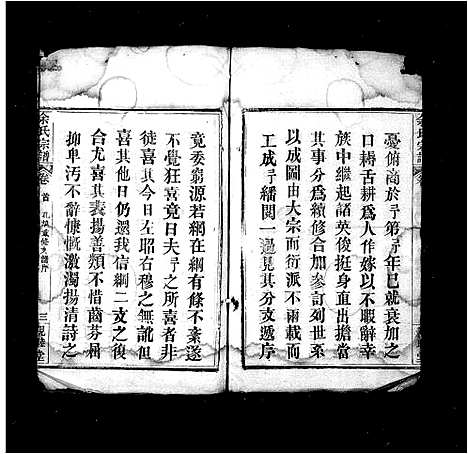 憂俯商於予第予年已就衰加之
口耕舌耕爲人作嫁以不暇辭幸
族中繼起諸英俊挺身直出擔當
其事分爲續修合加參訂列世系
以成圖由大宗而衍派不兩載
工成予繙閱一過見其分支遞序
竟委窮源若網在綱有條不紊遂
不覺狂喜竟日夫予之所喜者非
徒喜其今日左昭右穆之無訛但
喜其他日仍還我信綱二支之後
合尤喜其表揚善類不惜齒芬屏
抑卑汚不辭慷慨激濁揚清詩之
余氏宗譜
卷
首
三